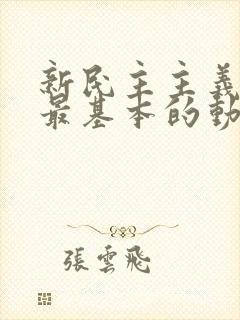 新民主主義
最基本的動
張雲飛